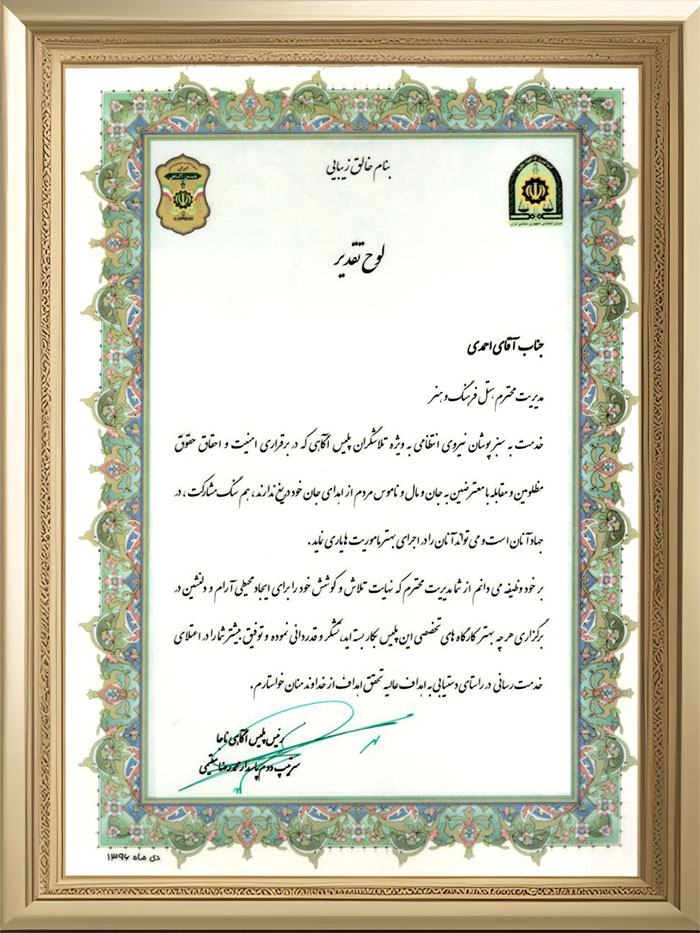 بنام خالق زیبایی
ایران
پلیس آگاهی
لوح تقدیر
جناب آقای احمدی
مدیریت محترم هتل فرهنگ و هنر
خدمت به سبزپوشان نیروی انتظامی به ویژه تلاشگران پلیس آگاهی که در برقراری امنیت و احقاق حقوق
مظلومین و مقابله با معترضین به جان و مال و ناموس مردم از اهدای جان خود دریغ ندارند، هم سنگ مشارکت، در
جهاد آنان است و می تواند آنان را در اجرای بهتر ماموریت ها یاری نماید.
بر خود وظیفه می دانم از شما مدیریت محترم که نهایت تلاش و کوشش خود را برای ایجاد محیطی آرام و دلنشین در
برگزاری هر چه بهتر کارگاه های تخصصی این پلیس بکار بسته اید، تشکر و قدردانی نموده و توفیق بیشتر شما را در اعتلای
خدمت رسانی در راستای دستیابی به اهداف عالیه تحقق اهداف از خداوند منان خواستارم.
رئیس پلیس آگاهی ناجا
سرتیپ دوم پاسدار محمدرضا مقیمی
دی ماه ۱۳۹۶